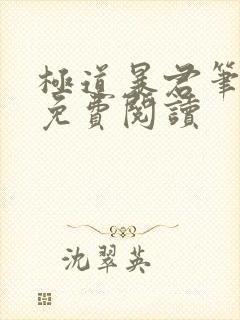 極道暴君筆
免費閱讀
沈翠英